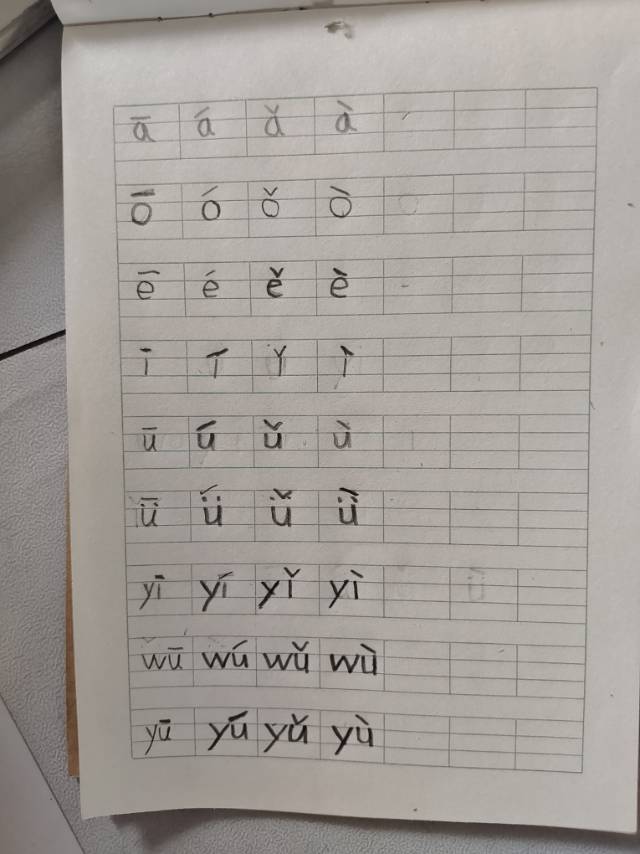 ā á ǎ à
ō ó ǒ ò
ē é ě è
ī í ǐ ì
ū ú ǔ ù
ǖ ǘ ǚ ǜ
yī yí yǐ yì
wū wú wǔ wù
yū yú yǔ yù